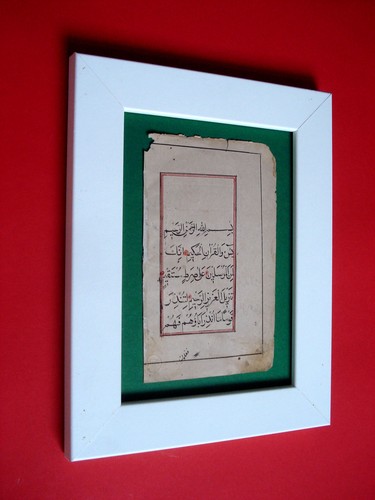 بسم الله الرحمن الرحيم
يس والقرآن الحكيم إنك
لمن المرسلين على صراط مستقيم
تنزيل العزيز الرحيم لتنذر
قوما ما أنذر آباؤهم فهم